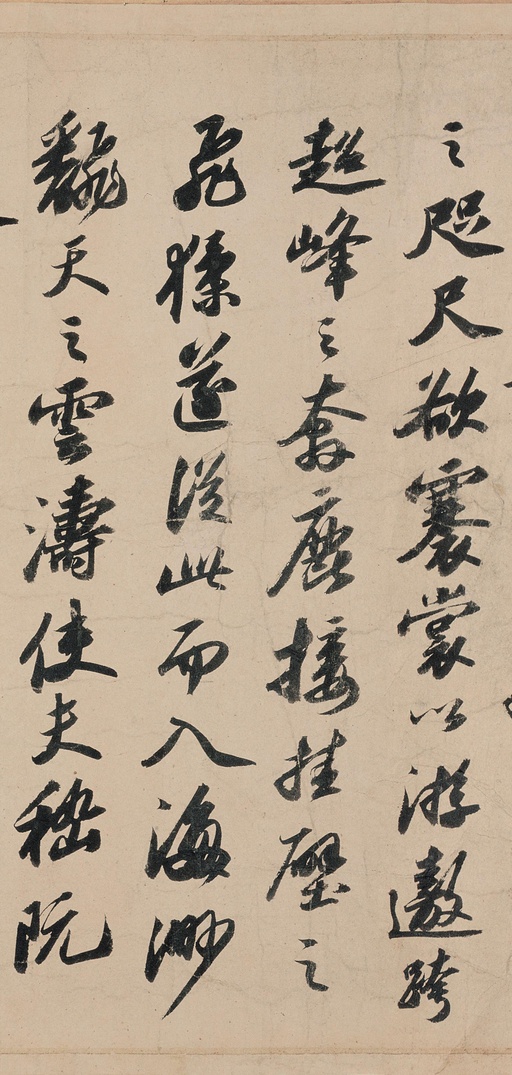 之咫尺欲褰裳以游遨跨
超峰之奔鹿接挂壁之
飛猱遂從此而入海渺
飜天之雲濤使夫嵇阮